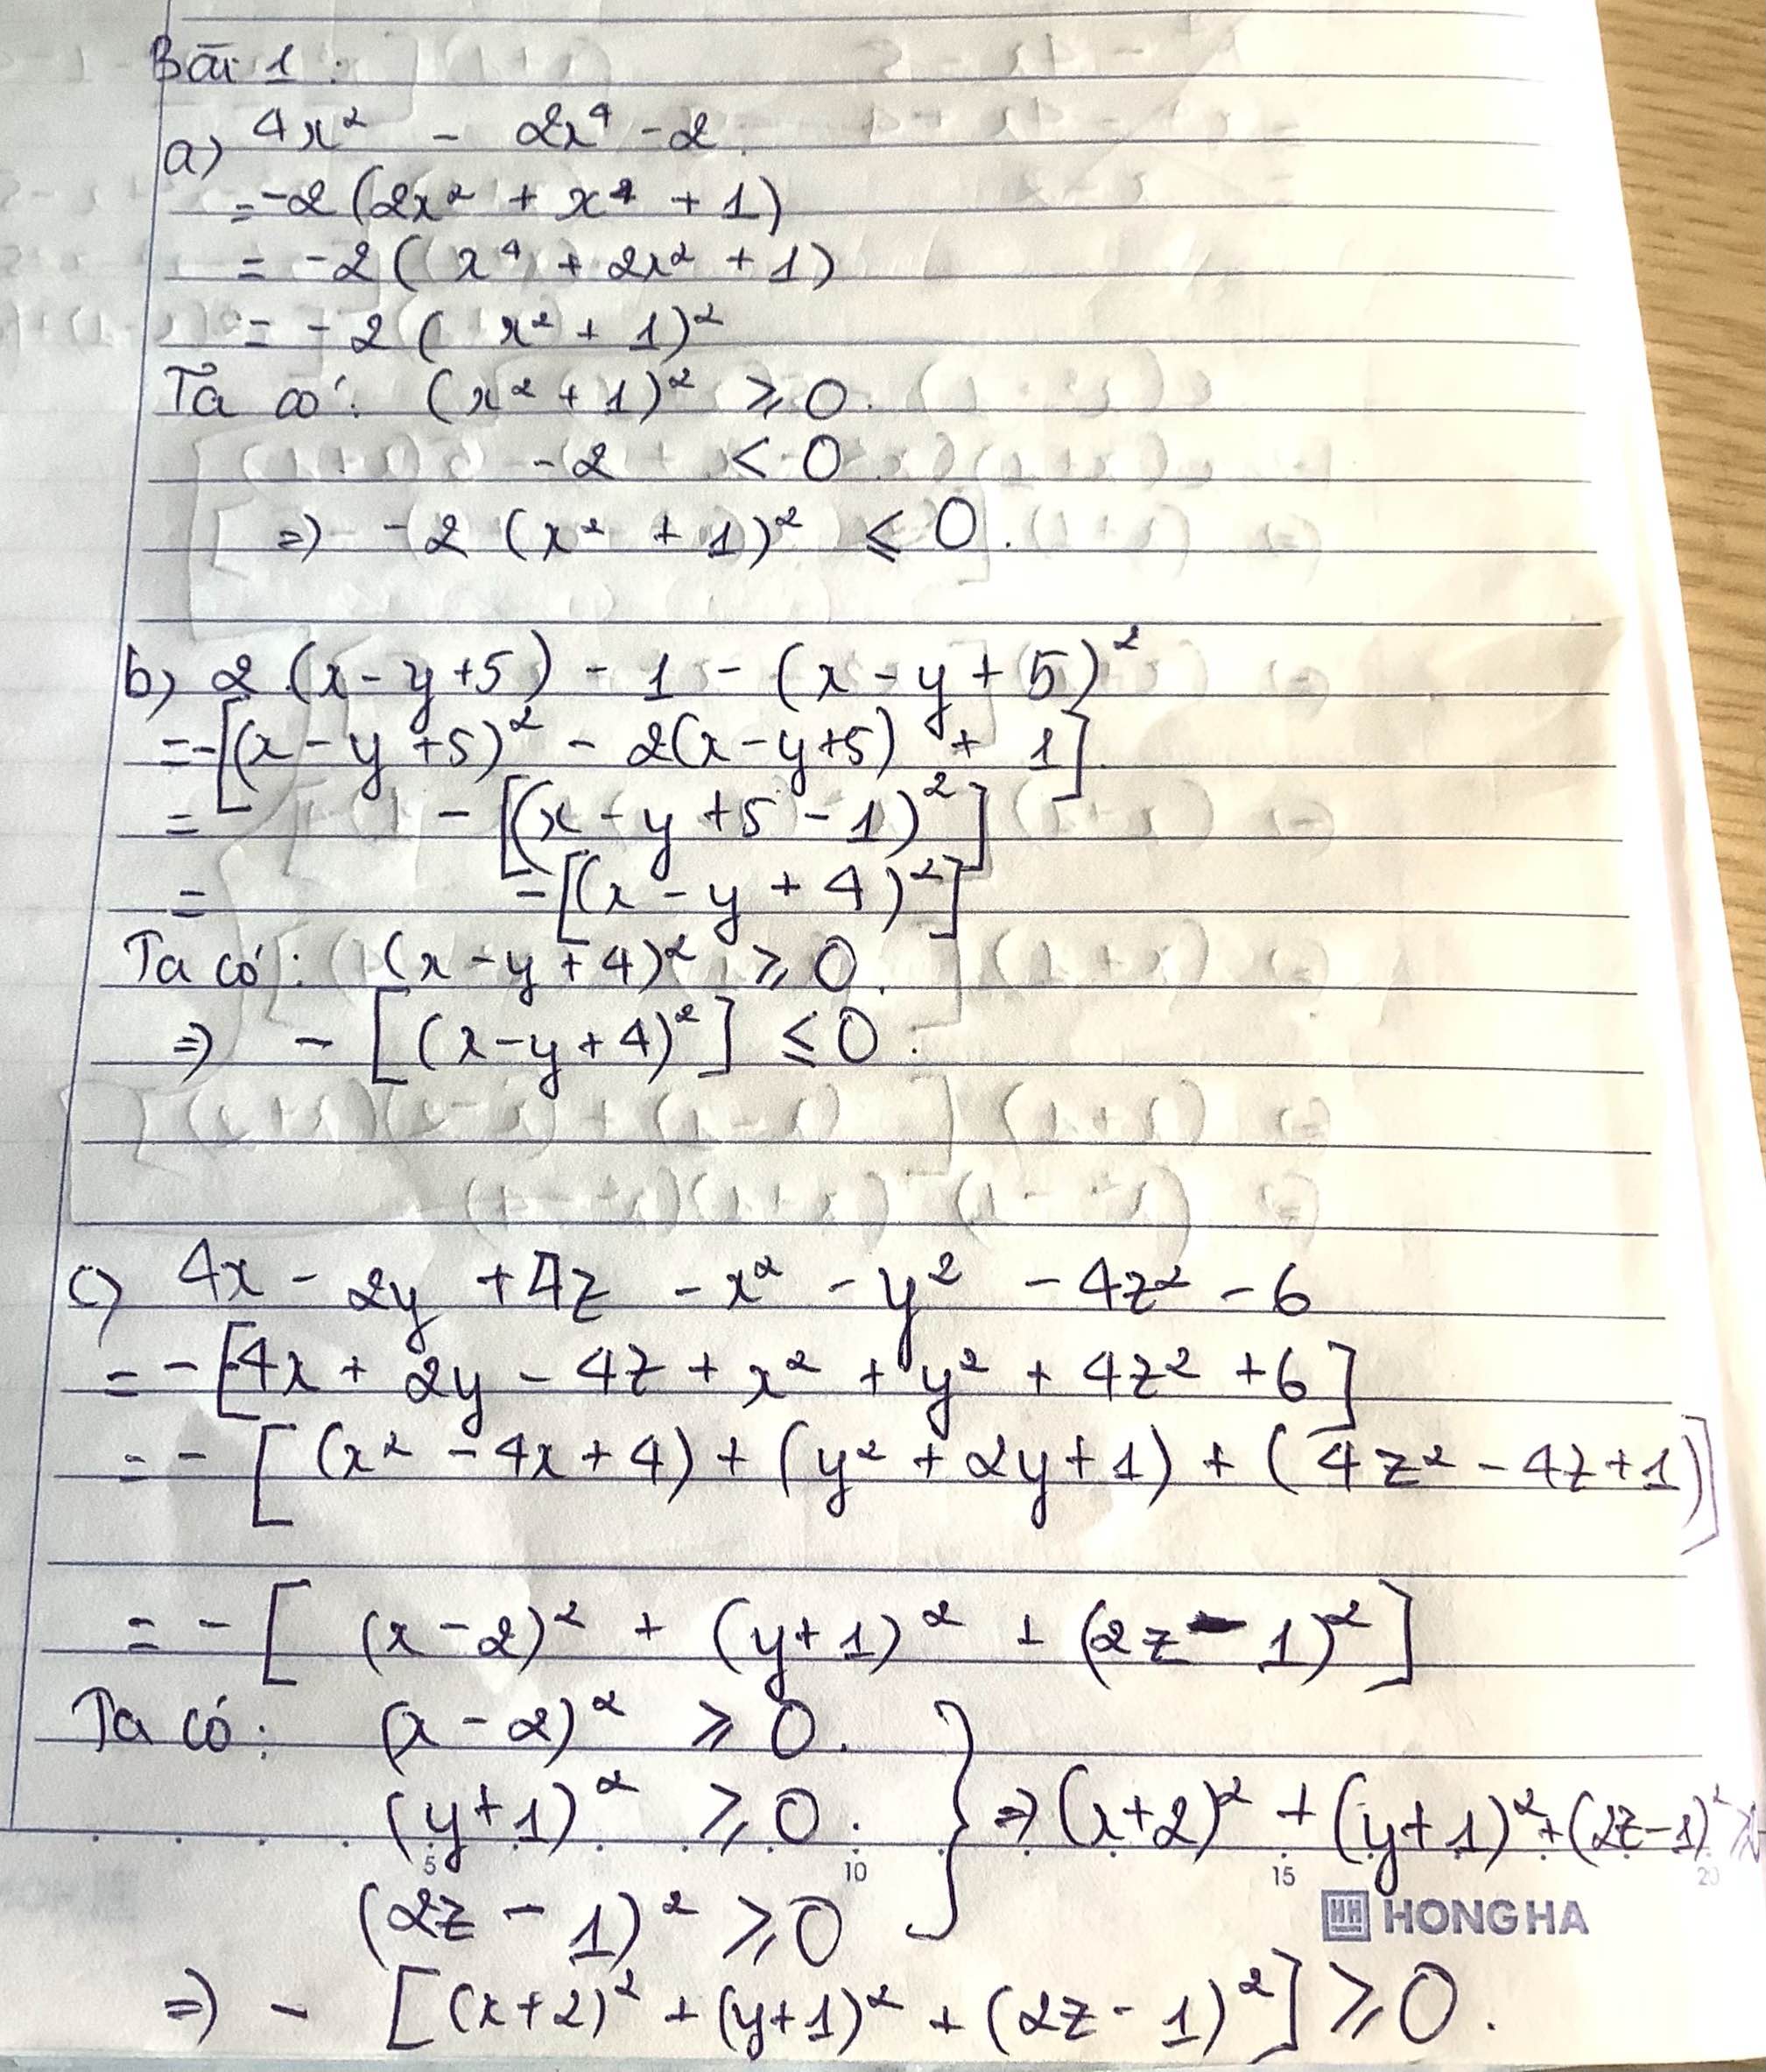 Bài 1:
a) 4x² - 2x⁴ - 2.
= -2 (2x² + x⁴ + 1)
= -2 ( x⁴ + 2x² + 1)
= -2 ( x² + 1)²
Ta có: (x² + 1)² ⩾ 0.
-2 < 0.
=> -2 (x² + 1)² ⩽ 0.
b) 2 (x - y + 5) - 1 - (x - y + 5)²
= -[(x - y + 5)² - 2(x - y + 5) + 1]
= - [(x - y + 5 - 1)²]
= -[(x - y + 4)²]
Ta có: (x - y + 4)² ⩾ 0.
=> - [(x - y + 4)²] ≤ 0.
c) 4x - 2y + 4z - x² - y² - 4z² - 6
= - [-4x + 2y - 4z + x² + y² + 4z² + 6]
= - [(x² - 4x + 4) + (y² + 2y + 1) + (4z² - 4z + 1)]
= - [ (x - 2)² + (y + 1)² + (2z - 1)²]
Ta có: (x - 2)² ⩾ 0.
(y + 1)² ⩾ 0. } => (x + 2)² + (y + 1)² + (2z - 1)² ⩾
5 10 15 20
HONG HA
(2z - 1)² ⩾ 0
=> - [(x + 2)² + (y + 1)² + (2z - 1)²] ⩾ 0.